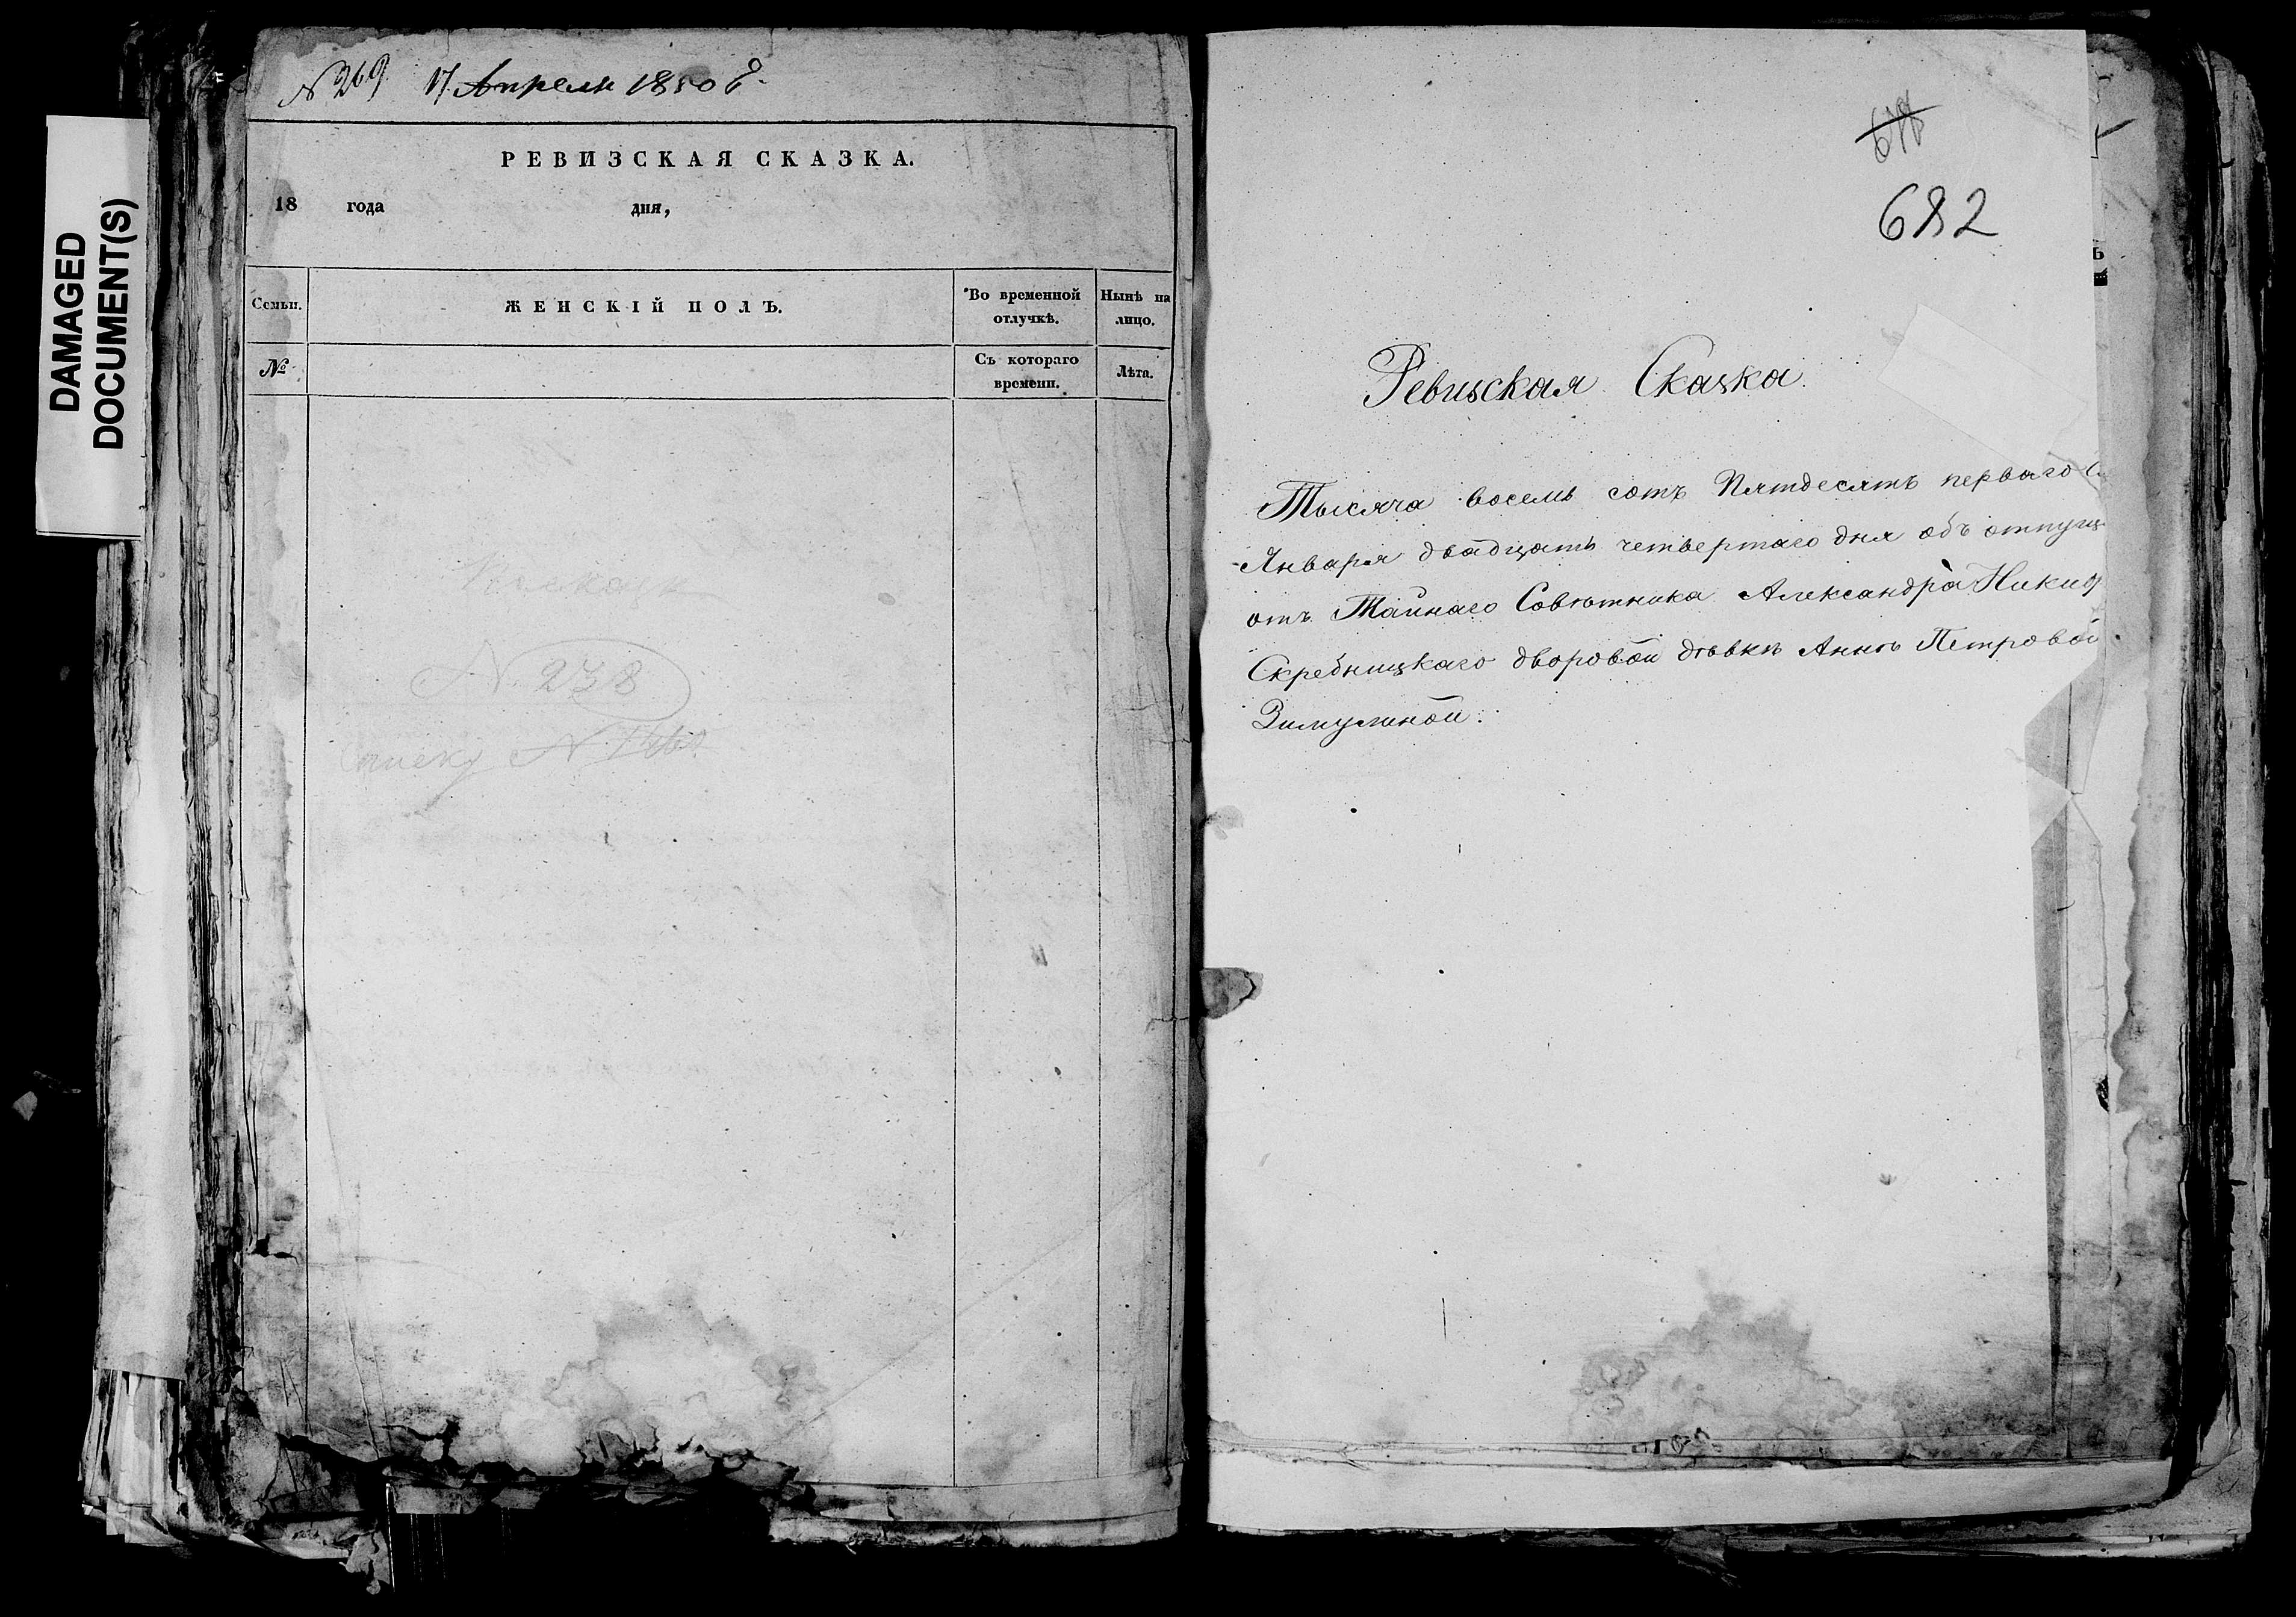 DAMAGED
DOCUMENT(S)
№ 269 17. Апреля 1850 г.
РЕВИЗСКАЯ СКАЗКА.
18 года дня,
Семьи.
ЖЕНСКІЙ ПОЛЪ.
Во временной
отлучкѣ.
Нынѣ на
лицо.
№
Съ котораго
времени.
Лѣта.
N. 238
Списку N
682
Ревизская Сказка.
Тысяча восемь сотъ Пятдесятъ перваго
Января двадцать четвертаго дня объ отпущ
отъ Тайнаго Совѣтника Александра Никиф
Скребницкаго дворовой дѣвкѣ Аннѣ Петровой
Зимулиной.